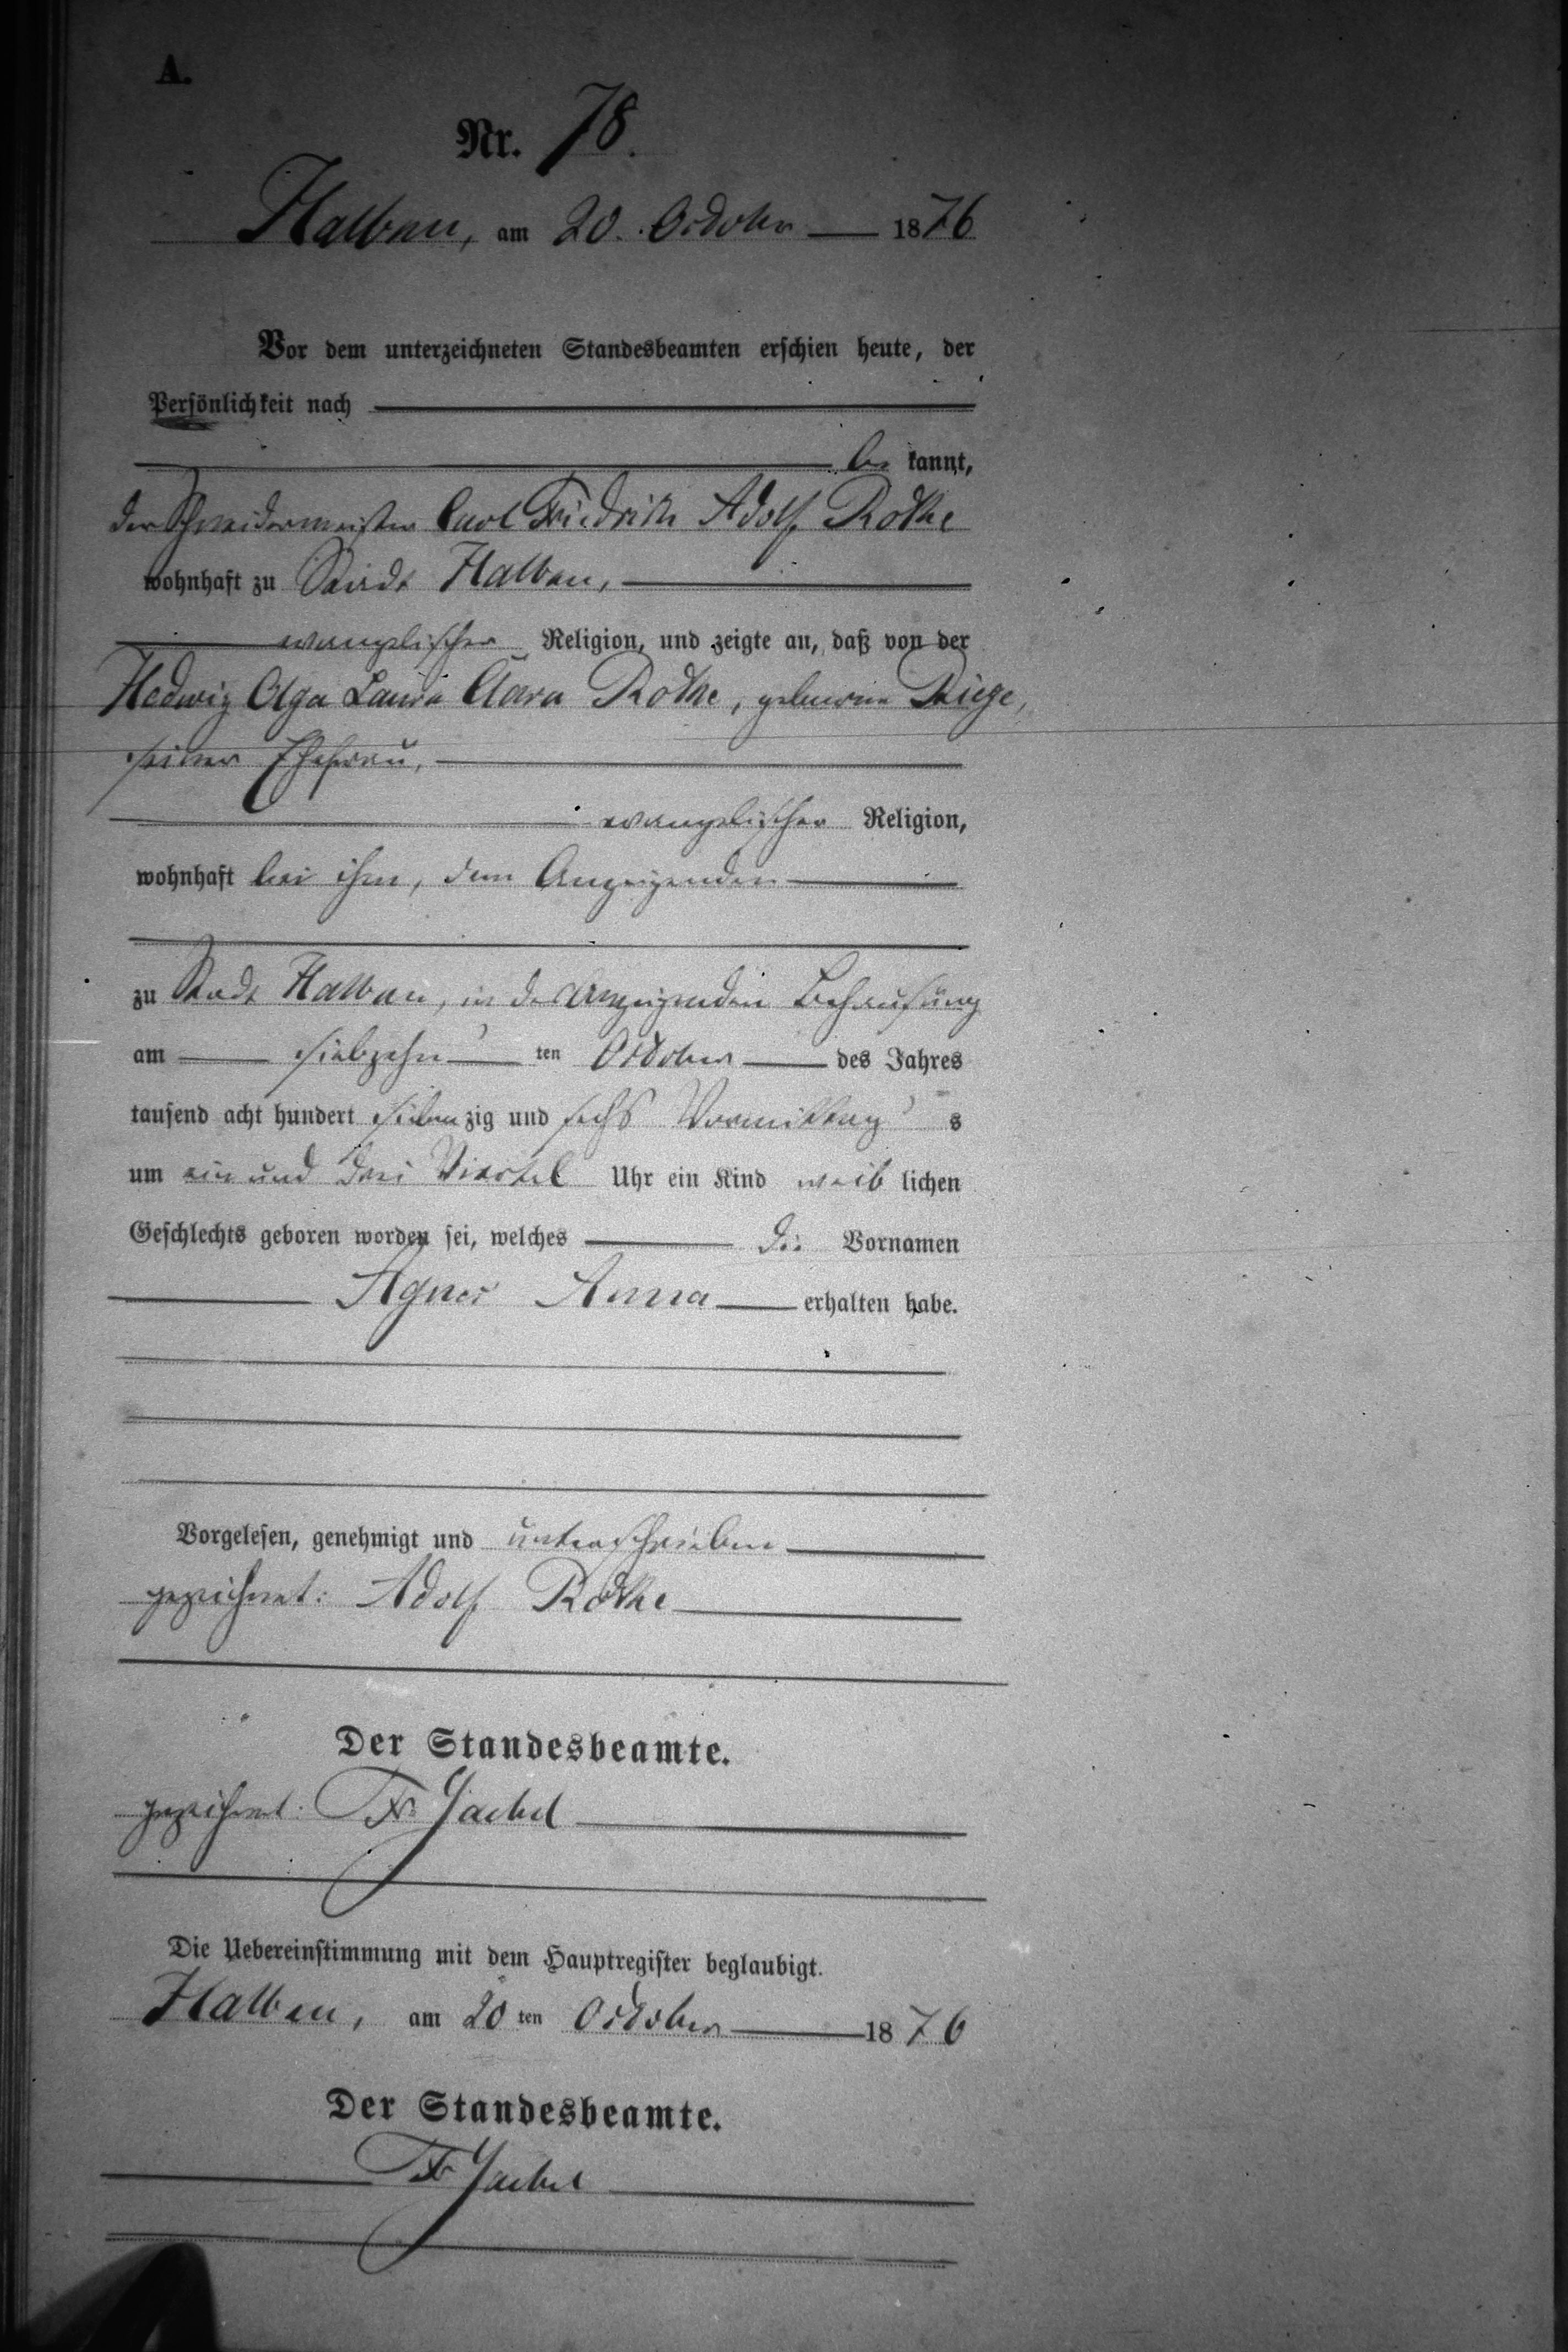 A.
Nr. 78.
Halbau, am 20. October 1876
Vor dem unterzeichneten Standesbeamten erschien heute, der
Persönlichkeit nach
be kannt,
der Schneidermeister Carl Friedrich Adolf Rothe
wohnhaft zu Stadt Halbau,
evangelischer Religion, und zeigte an, daß von der
Hedwig Olga Laura Clara Rothe, geborene Riege,
seiner Ehefrau,
evangelischer Religion,
wohnhaft bei ihm, dem Anzeigenden
zu Stadt Halbau, in des Anzeigenden Behausung
am siebzehn ten October des Jahres
tausend acht hundert siebenzig und sechs Vormittag s
um ein und drei Viertel Uhr ein Kind weib lichen
Geschlechts geboren worden sei, welches die Vornamen
Agnes Anna erhalten habe.
Vorgelesen, genehmigt und unterschrieben
gezeichnet: Adolf Rothe
Der Standesbeamte.
gezeichnet: Fr. Jaekel
Die Uebereinstimmung mit dem Hauptregister beglaubigt.
Halbau, am 20 ten October 1876
Der Standesbeamte.
Fr Jaekel